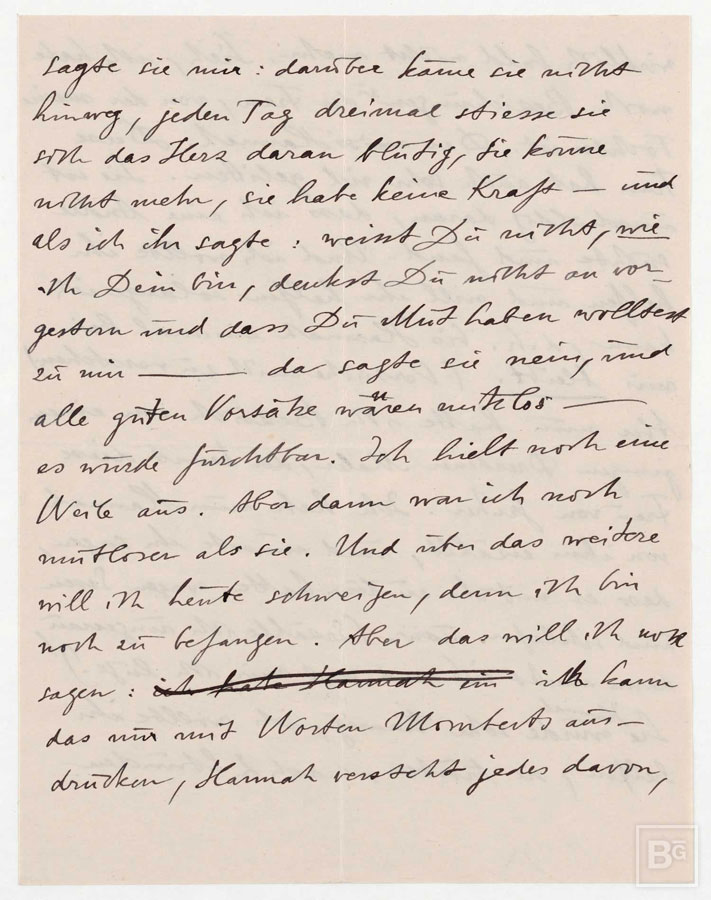 sagte sie mir: darüber käme sie nicht
hinweg, jeden Tag dreimal stiesse sie
sich das Herz daran blutig, sie könne
nicht mehr, sie habe keine Kraft — und
als ich ihr sagte: weisst Du nicht, wie
ich Dein bin, denkst Du nicht an vor-
gestern und dass Du Mut haben wolltest
zu mir —— da sagte sie nein, und
alle guten Vorsätze wären nutzlos —
es würde furchtbar. Ich hielt noch eine
Weile aus. Aber dann war ich noch
mutloser als sie. Und über das weitere
will ich heute schweigen, denn ich bin
noch zu befangen. Aber das will ich noch
sagen: ich habe Hannah im ich kann
das nur mit Worten Momberts aus-
drücken, Hannah versteht jedes davon,
BG